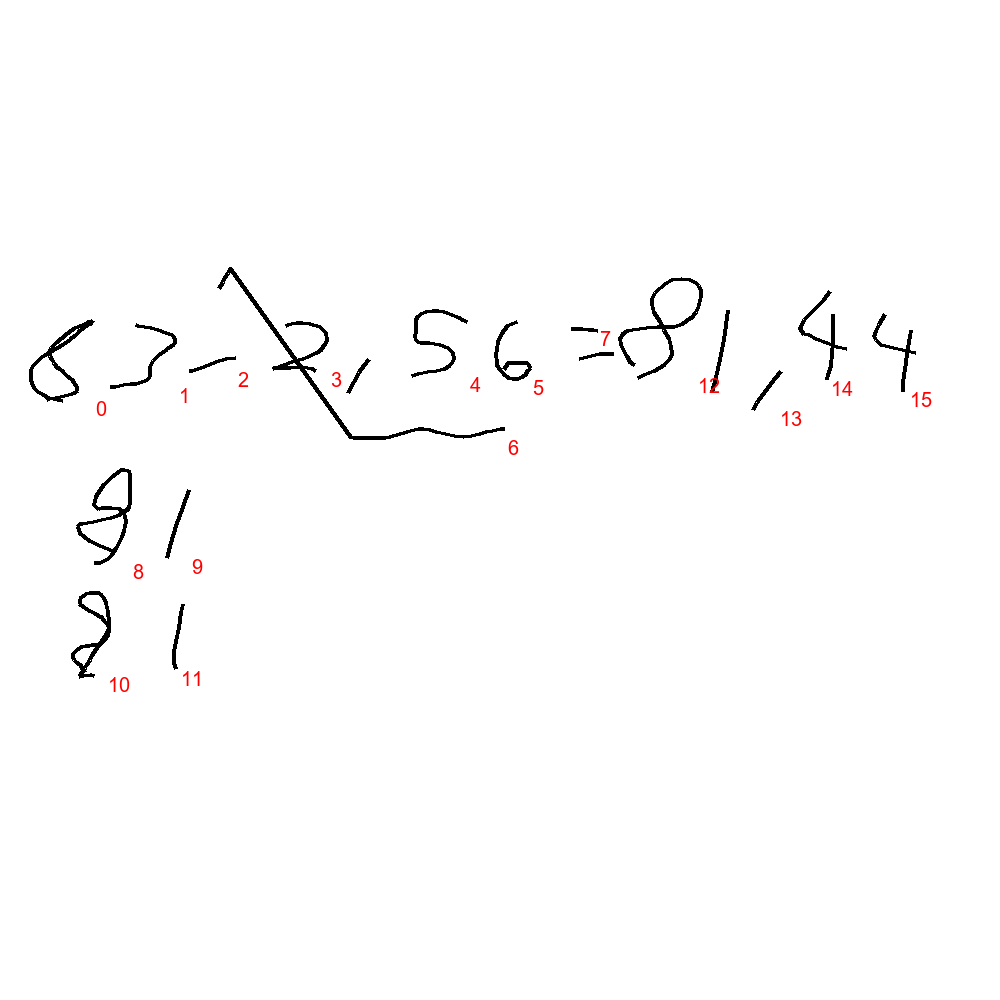 83-2,56=81,44
0 1 2 3 4 5 7 12 13 14 15
6
81
8 9
81
10 11